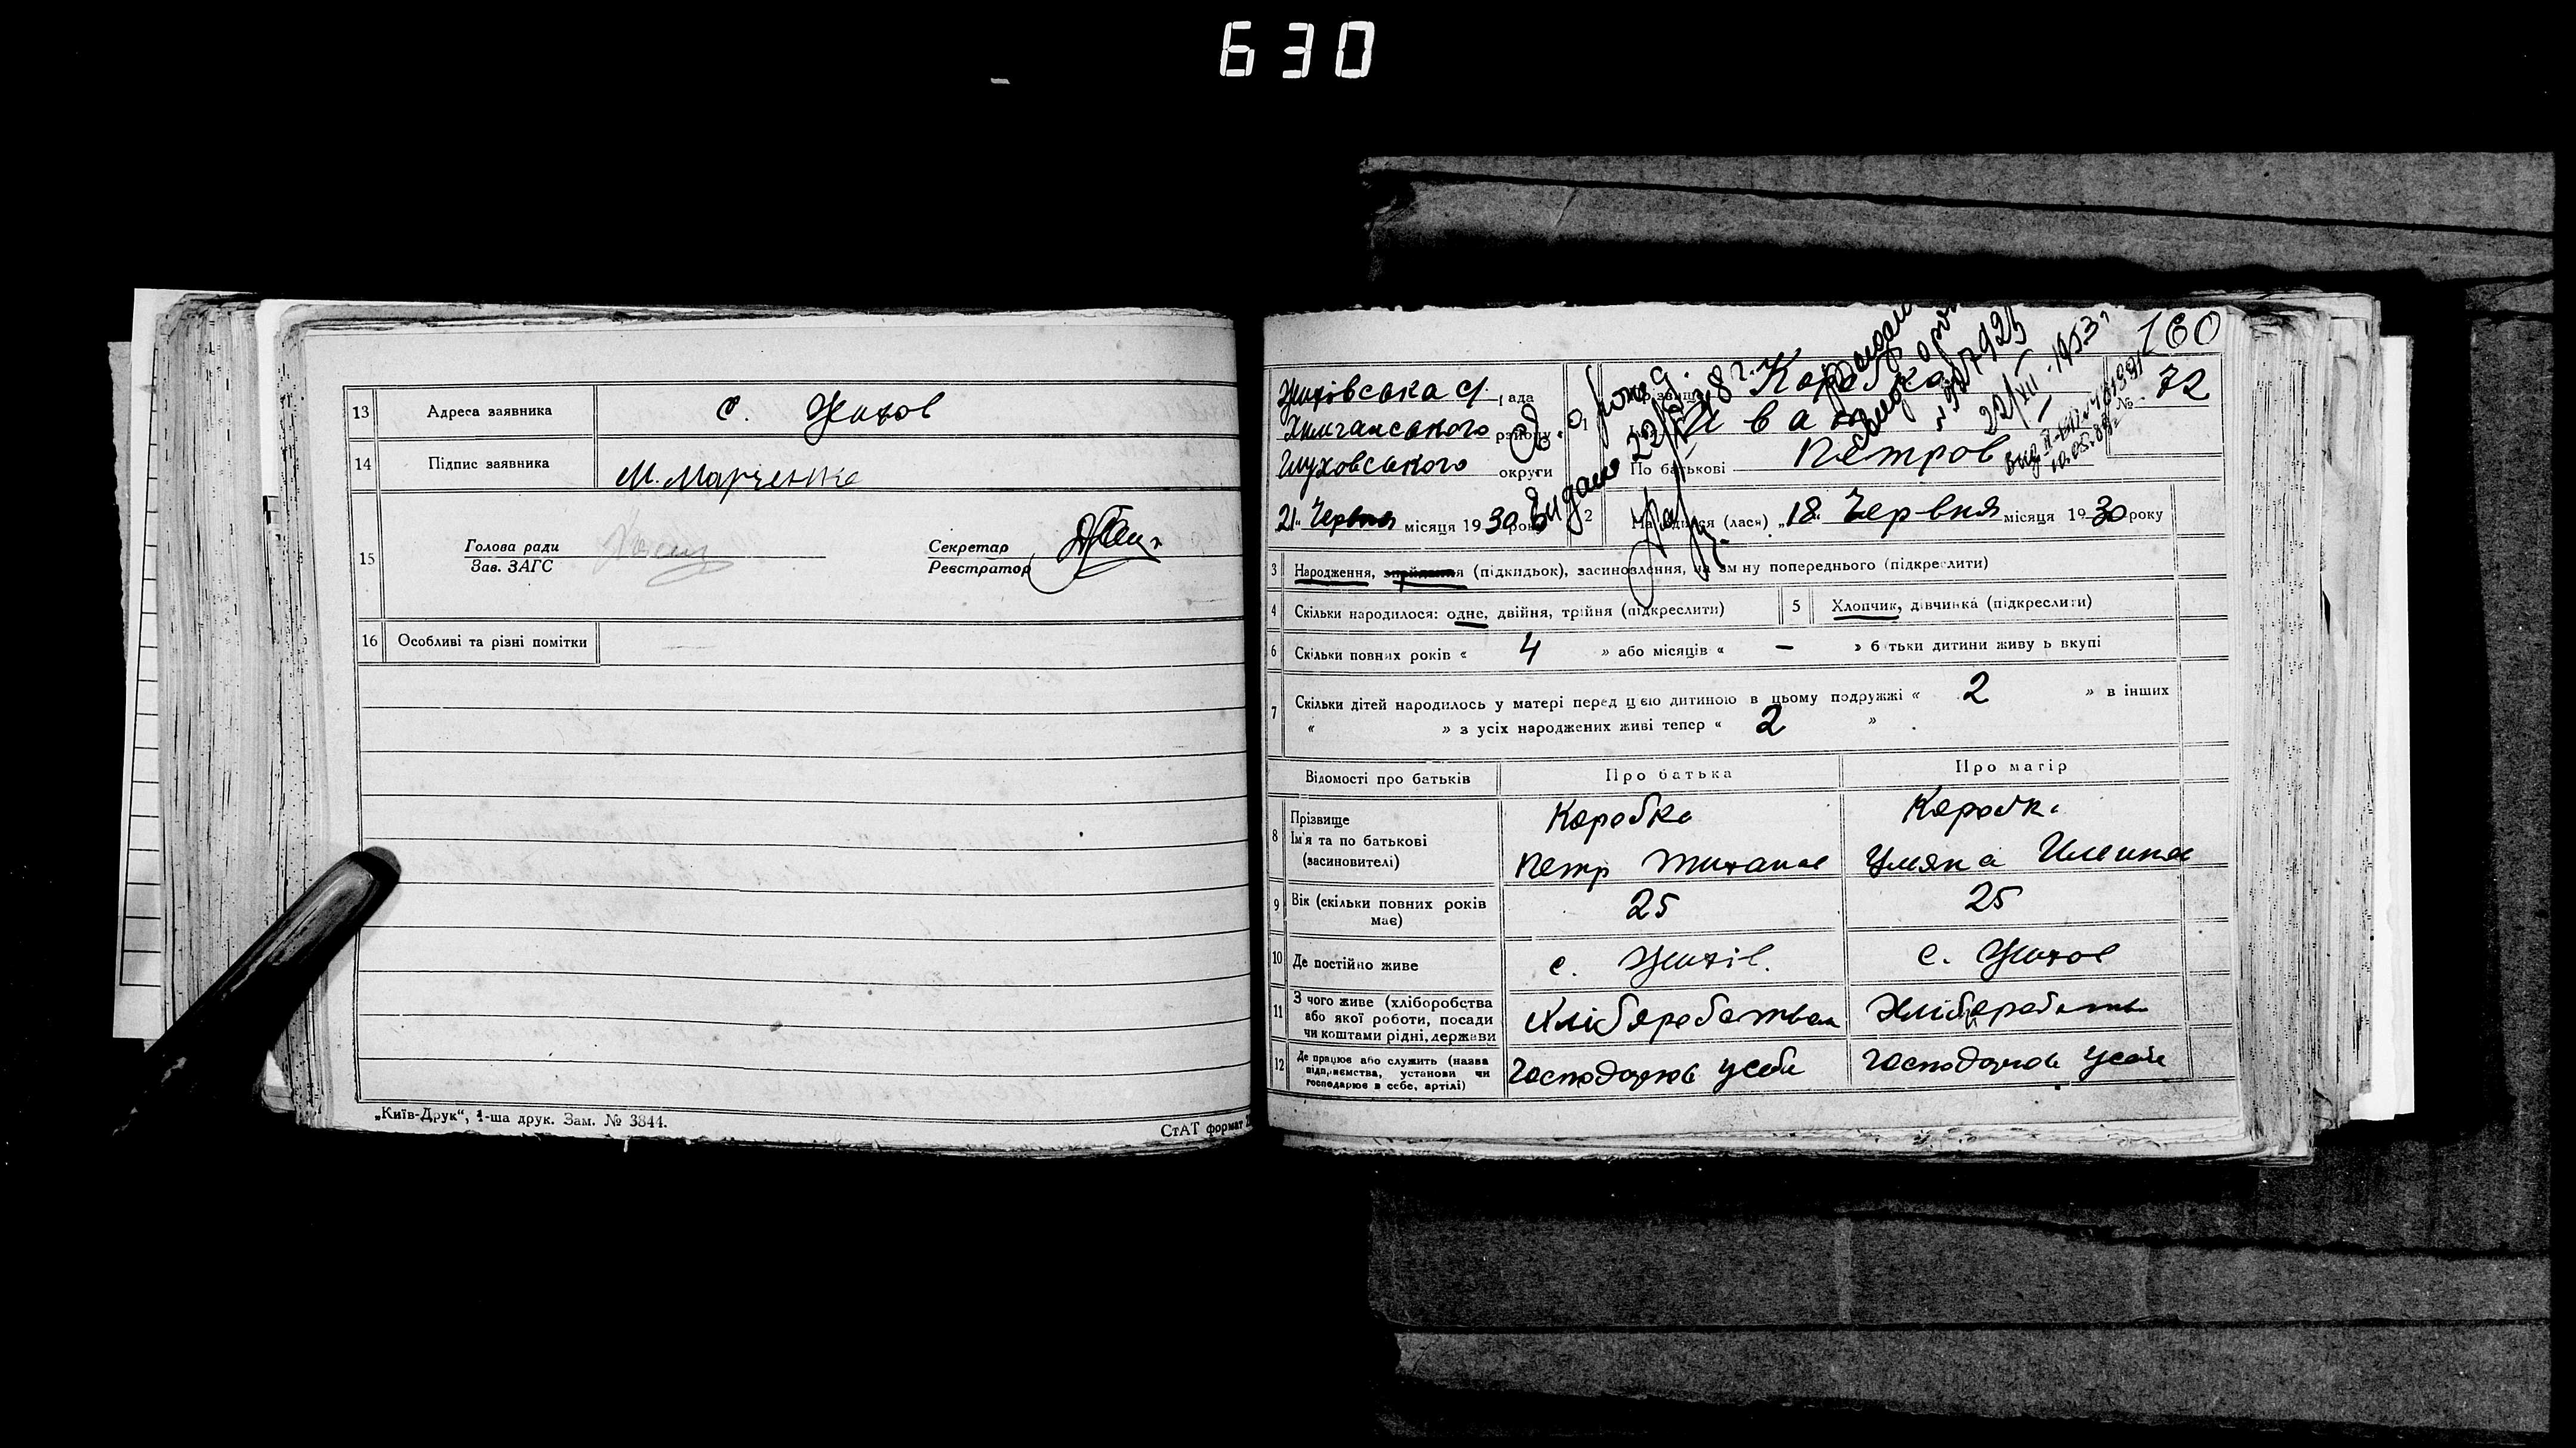 630
13 Адреса заявника с. Жихов
14 Підпис заявника М. Марченко
15 Голова ради
Зав. ЗАГС
Секретар
Реєстратор
16 Особливі та різні помітки
„Київ-Друк“, 1-ша друк. Зам. № 3844.
СтАТ формат
160
Жихівська с/рада
Хильчанського району
Глуховського округи
„21“ Червня місяця 1930 року
1 Коробка
Іван
По батькові Петров
№ 72
Видано св. о рожд.
22/XII-1953 г.
10.05.88г
2 Народився (лася) „18“ Червня місяця 1930 року
3 Народження, знайдення (підкидьок), засиновлення, на зміну попереднього (підкреслити)
4 Скільки народилося: одне, двійня, трійня (підкреслити)
5 Хлопчик, дівчинка (підкреслити)
6 Скільки повних років « 4 » або місяців « – » батьки дитини живуть вкупі
7 Скільки дітей народилось у матері перед цією дитиною в цьому подружжі « 2 » в інших
« » з усіх народжених живі тепер « 2 »
Відомості про батьків Про батька Про матір
8 Прізвище Коробка Коробка
Ім'я та по батькові
(засиновителі) Петр Уляна
9 Вік (скільки повних років має) 25 25
10 Де постійно живе с. Жихів. с. Жихов
11 З чого живе (хліборобства
або якої роботи, посади
чи коштами рідні, держави Хлібороботвом
12 Де працює або служить (назва
підприємства, установи чи
господарює в себе, артілі) Господарює усебе Господарює усебе